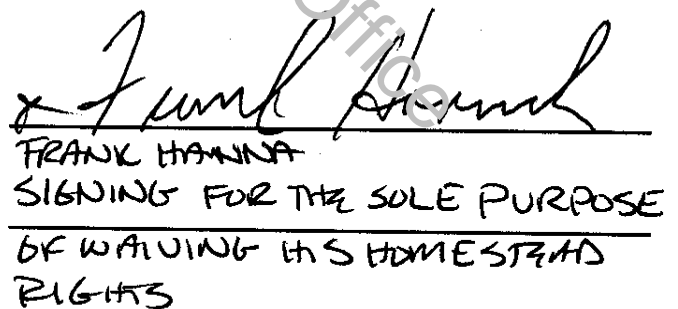 Office
x Frank Hanna
FRANK HANNA
SIGNING FOR THE SOLE PURPOSE
OF WAIVING HIS HOMESTEAD
RIGHTS